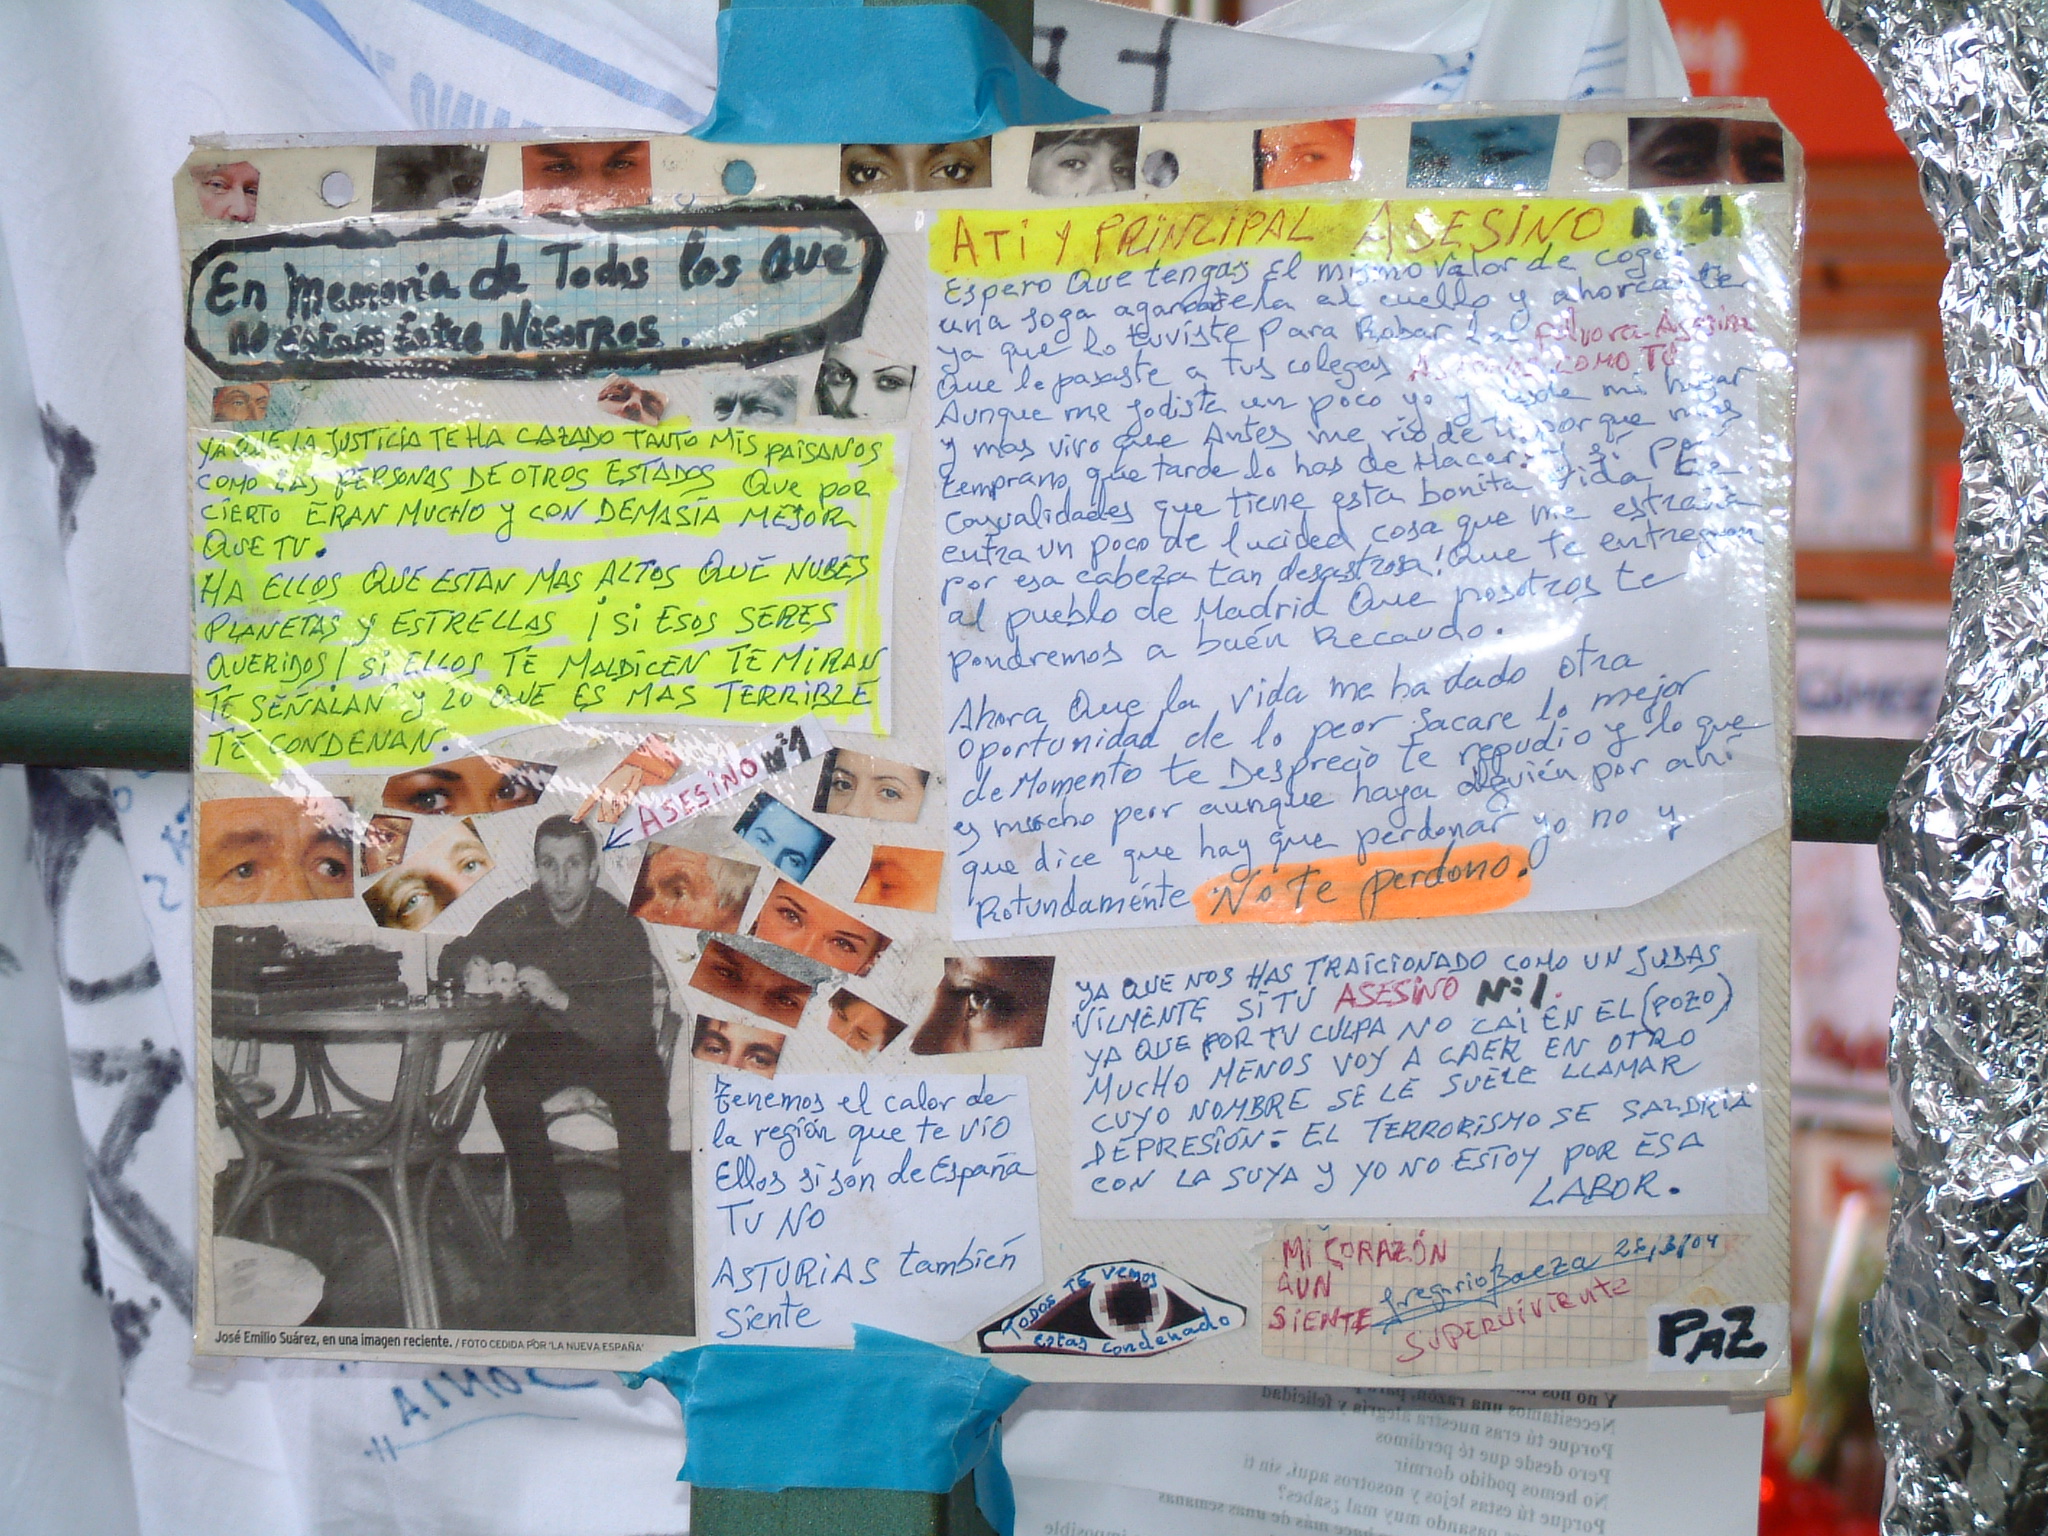 En Memoria de Todos los Que
no estan Entre Nosotros.
YA QUE LA JUSTICIA TE HA CAZADO TANTO MIS PAISANOS
COMO LAS PERSONAS DE OTROS ESTADOS QUE POR
CIERTO ERAN MUCHO Y CON DEMASIA MEJOR
QUE TU.
HA ELLOS QUE ESTAN MAS ALTOS QUE NUBES
PLANETAS Y ESTRELLAS ¡SI ESOS SERES
QUERIDOS! SI ELLOS TE MALDICEN TE MIRAN
TE SEÑALAN Y LO QUE ES MAS TERRIBLE
TE CONDENAN.
ASESINO Nº1
José Emilio Suárez, en una imagen reciente. / FOTO CEDIDA POR 'LA NUEVA ESPAÑA'
Tenemos el calor de
la región que te vio
Ellos si son de España
TU NO
ASTURIAS también
Siente
A TI Y PRINCIPAL ASESINO Nº 1
Espero Que tengas El mismo valor de coger
una soga agarrartela al cuello y ahorcarte
ya que lo tuviste para Robar la Polvora Asesina
Que le pasaste a tus colegas ASESINOS COMO TÚ
Aunque me jodiste un poco yo y desde mi hogar
y mas vivo que Antes me rio de ti porque mas
temprano que tarde lo has de Hacer. Y si por
Casualidades que tiene esta bonita vida te
entra un poco de lucided cosa que me estraña
por esa cabeza tan desastrosa! Que te entreguen
al pueblo de Madrid Que nosotros te
pondremos a buén Recaudo.
Ahora Que la vida me ha dado otra
oportunidad de lo peor Sacare lo mejor
de Momento te Desprecio te repudio y lo que
es mucho peor aunque haya alguién por ahí
que dice que hay que perdonar yo no y
Rotundaménte No Te perdono.
YA QUE NOS HAS TRAICIONADO COMO UN JUDAS
VILMENTE SI TÚ ASESINO Nº1.
YA QUE POR TU CULPA NO CAI EN EL (POZO)
MUCHO MENOS VOY A CAER EN OTRO
CUYO NOMBRE SE LE SUELE LLAMAR
DEPRESIÓN: EL TERRORISMO SE SALDRIA
CON LA SUYA Y YO NO ESTOY POR ESA
LABOR.
TODOS TE VEMOS
Estas condenado
MI CORAZÓN
AUN
SIENTE
Gregorio Baeza 28/3/04
SUPERVIVIENTE
PAZ
Necesitamos una razón, para
Porque tú eras nuestra alegría y felicidad
Pero desde que té perdimos
No hemos podido dormir
Porque tú estas lejos y nosotros aquí, sin ti